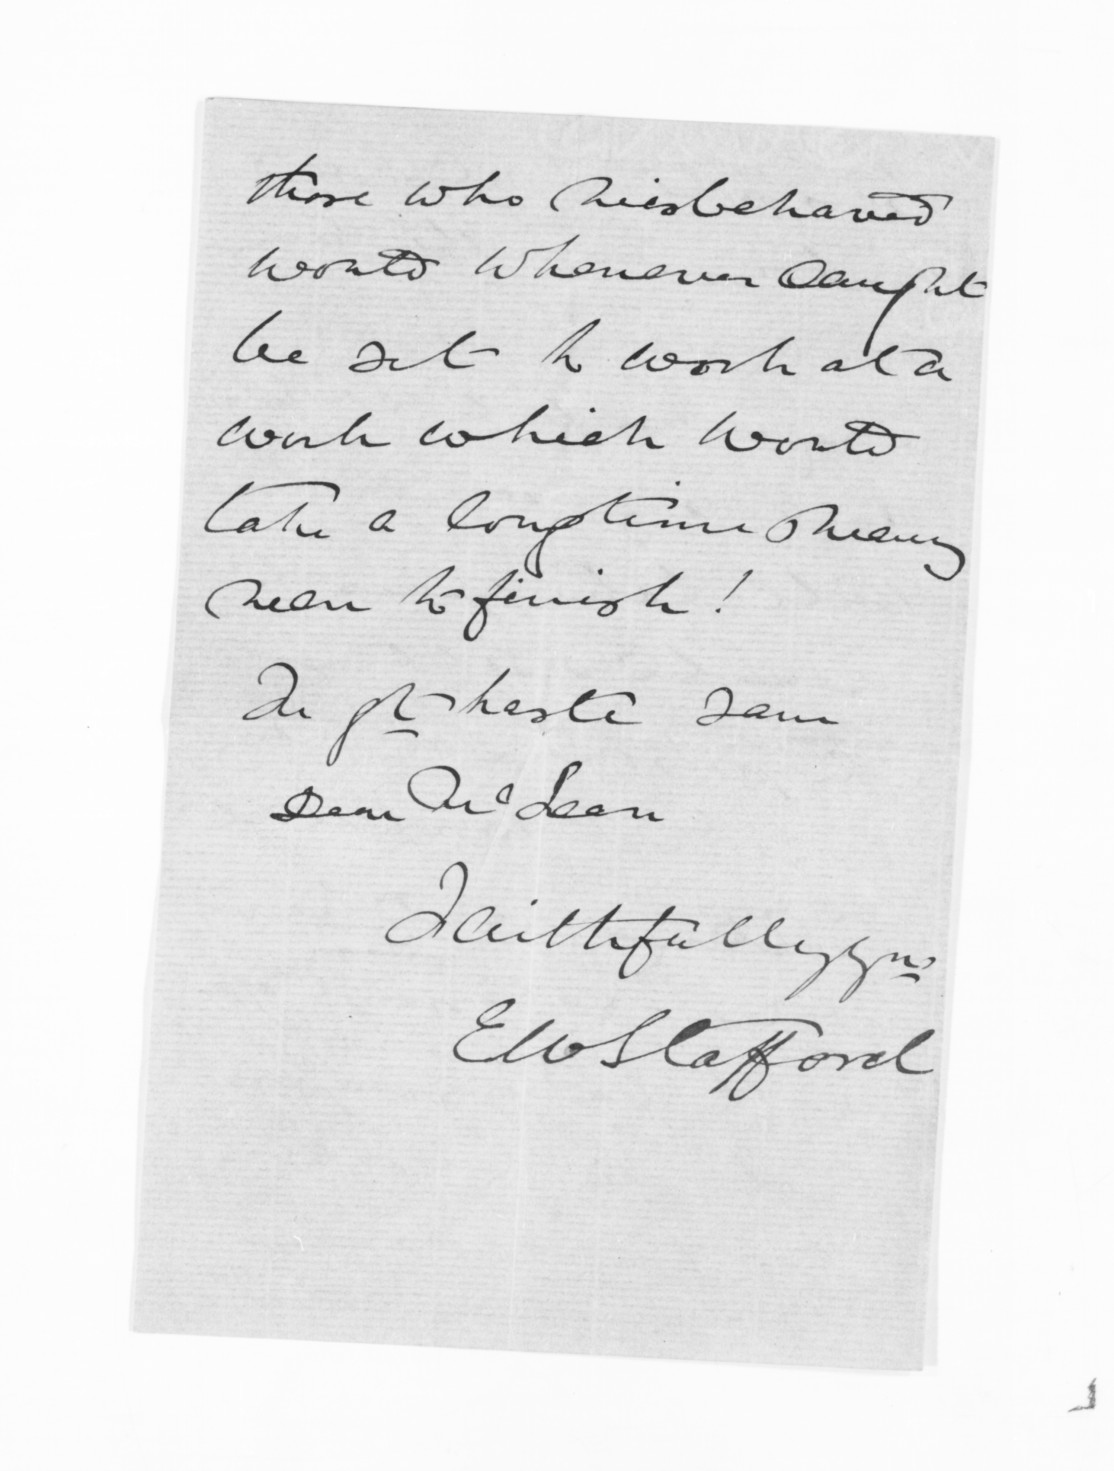 those who misbehaved
would whenever caught
be set to work at a
work which would
take a long time many
men to finish!
In gt haste I am
Dear McLean
Faithfully yrs
EW Stafford